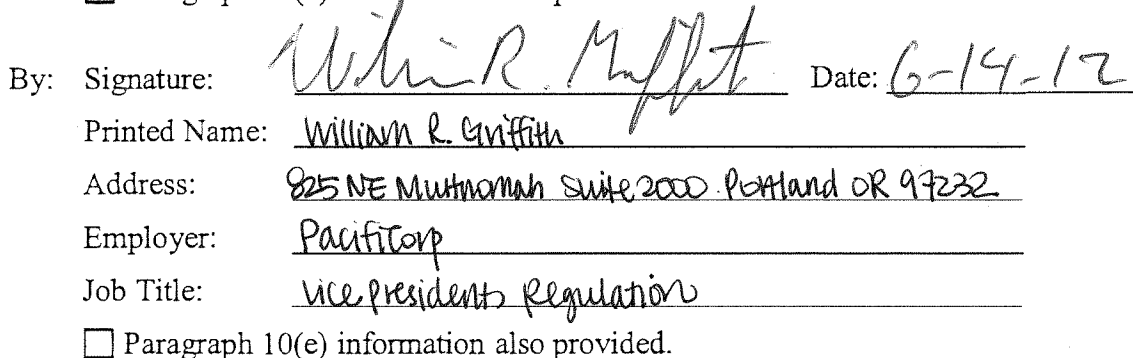 By: Signature: William R. Griffith Date: 6-14-12
Printed Name: William R. Griffith
Address: 825 NE Multnomah Suite 2000 Portland OR 97232
Employer: PacifiCorp
Job Title: Vice President, Regulation
☐ Paragraph 10(e) information also provided.